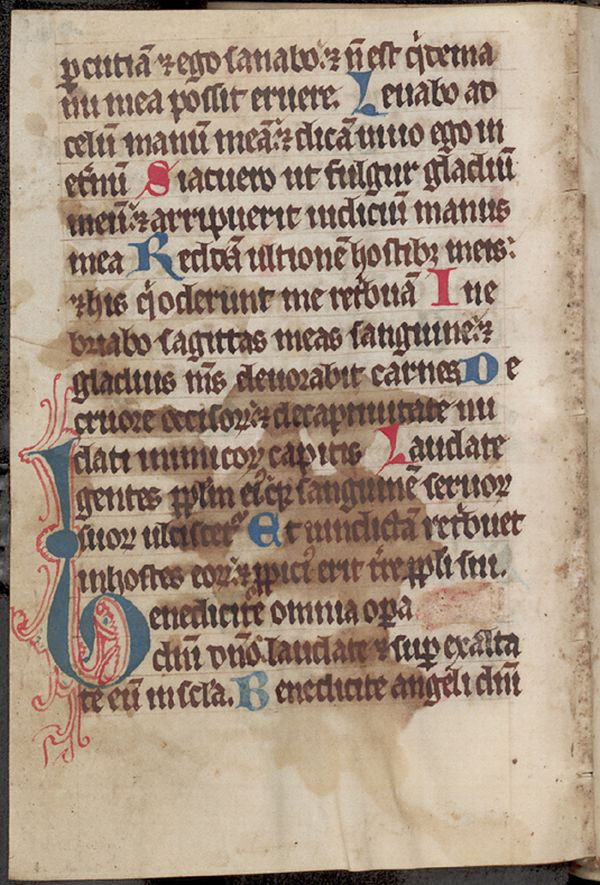 ꝑcutiā ⁊ ego sanabo: ⁊ n̄ est q̇ de ma
nu mea possit eruere. Leuabo ad
celū manū meā: ⁊ dicā uiuo ego in
et̄nū Si acuero ut fulgur gladiū
meū: ⁊ arripuerit iudiciū manus
mea Reddā ultionē hostibꝫ meis:
⁊ his q̇ oderunt me ret̄buā Ine
briabo sagittas meas sanguine: ⁊
gladius ms̄ deuorabit carnes De
cruore occisoꝝ: ⁊ de captiuitate nu
dati inimicoꝝ capitis Laudate
gentes ppl̄m ei⁹ q̇ sanguinē seruoꝝ
suoꝝ ulciscet᷑ Et uindictā ret̄buet
in hostes eoꝝ: ⁊ ꝓpici⁹ erit t̄re ppl̄i sui.
Benedicite omnia oꝑa
dn̄i dn̄o laudate ⁊ suꝑexalta
te eū in scl̄a. Benedicite angeli dn̄i